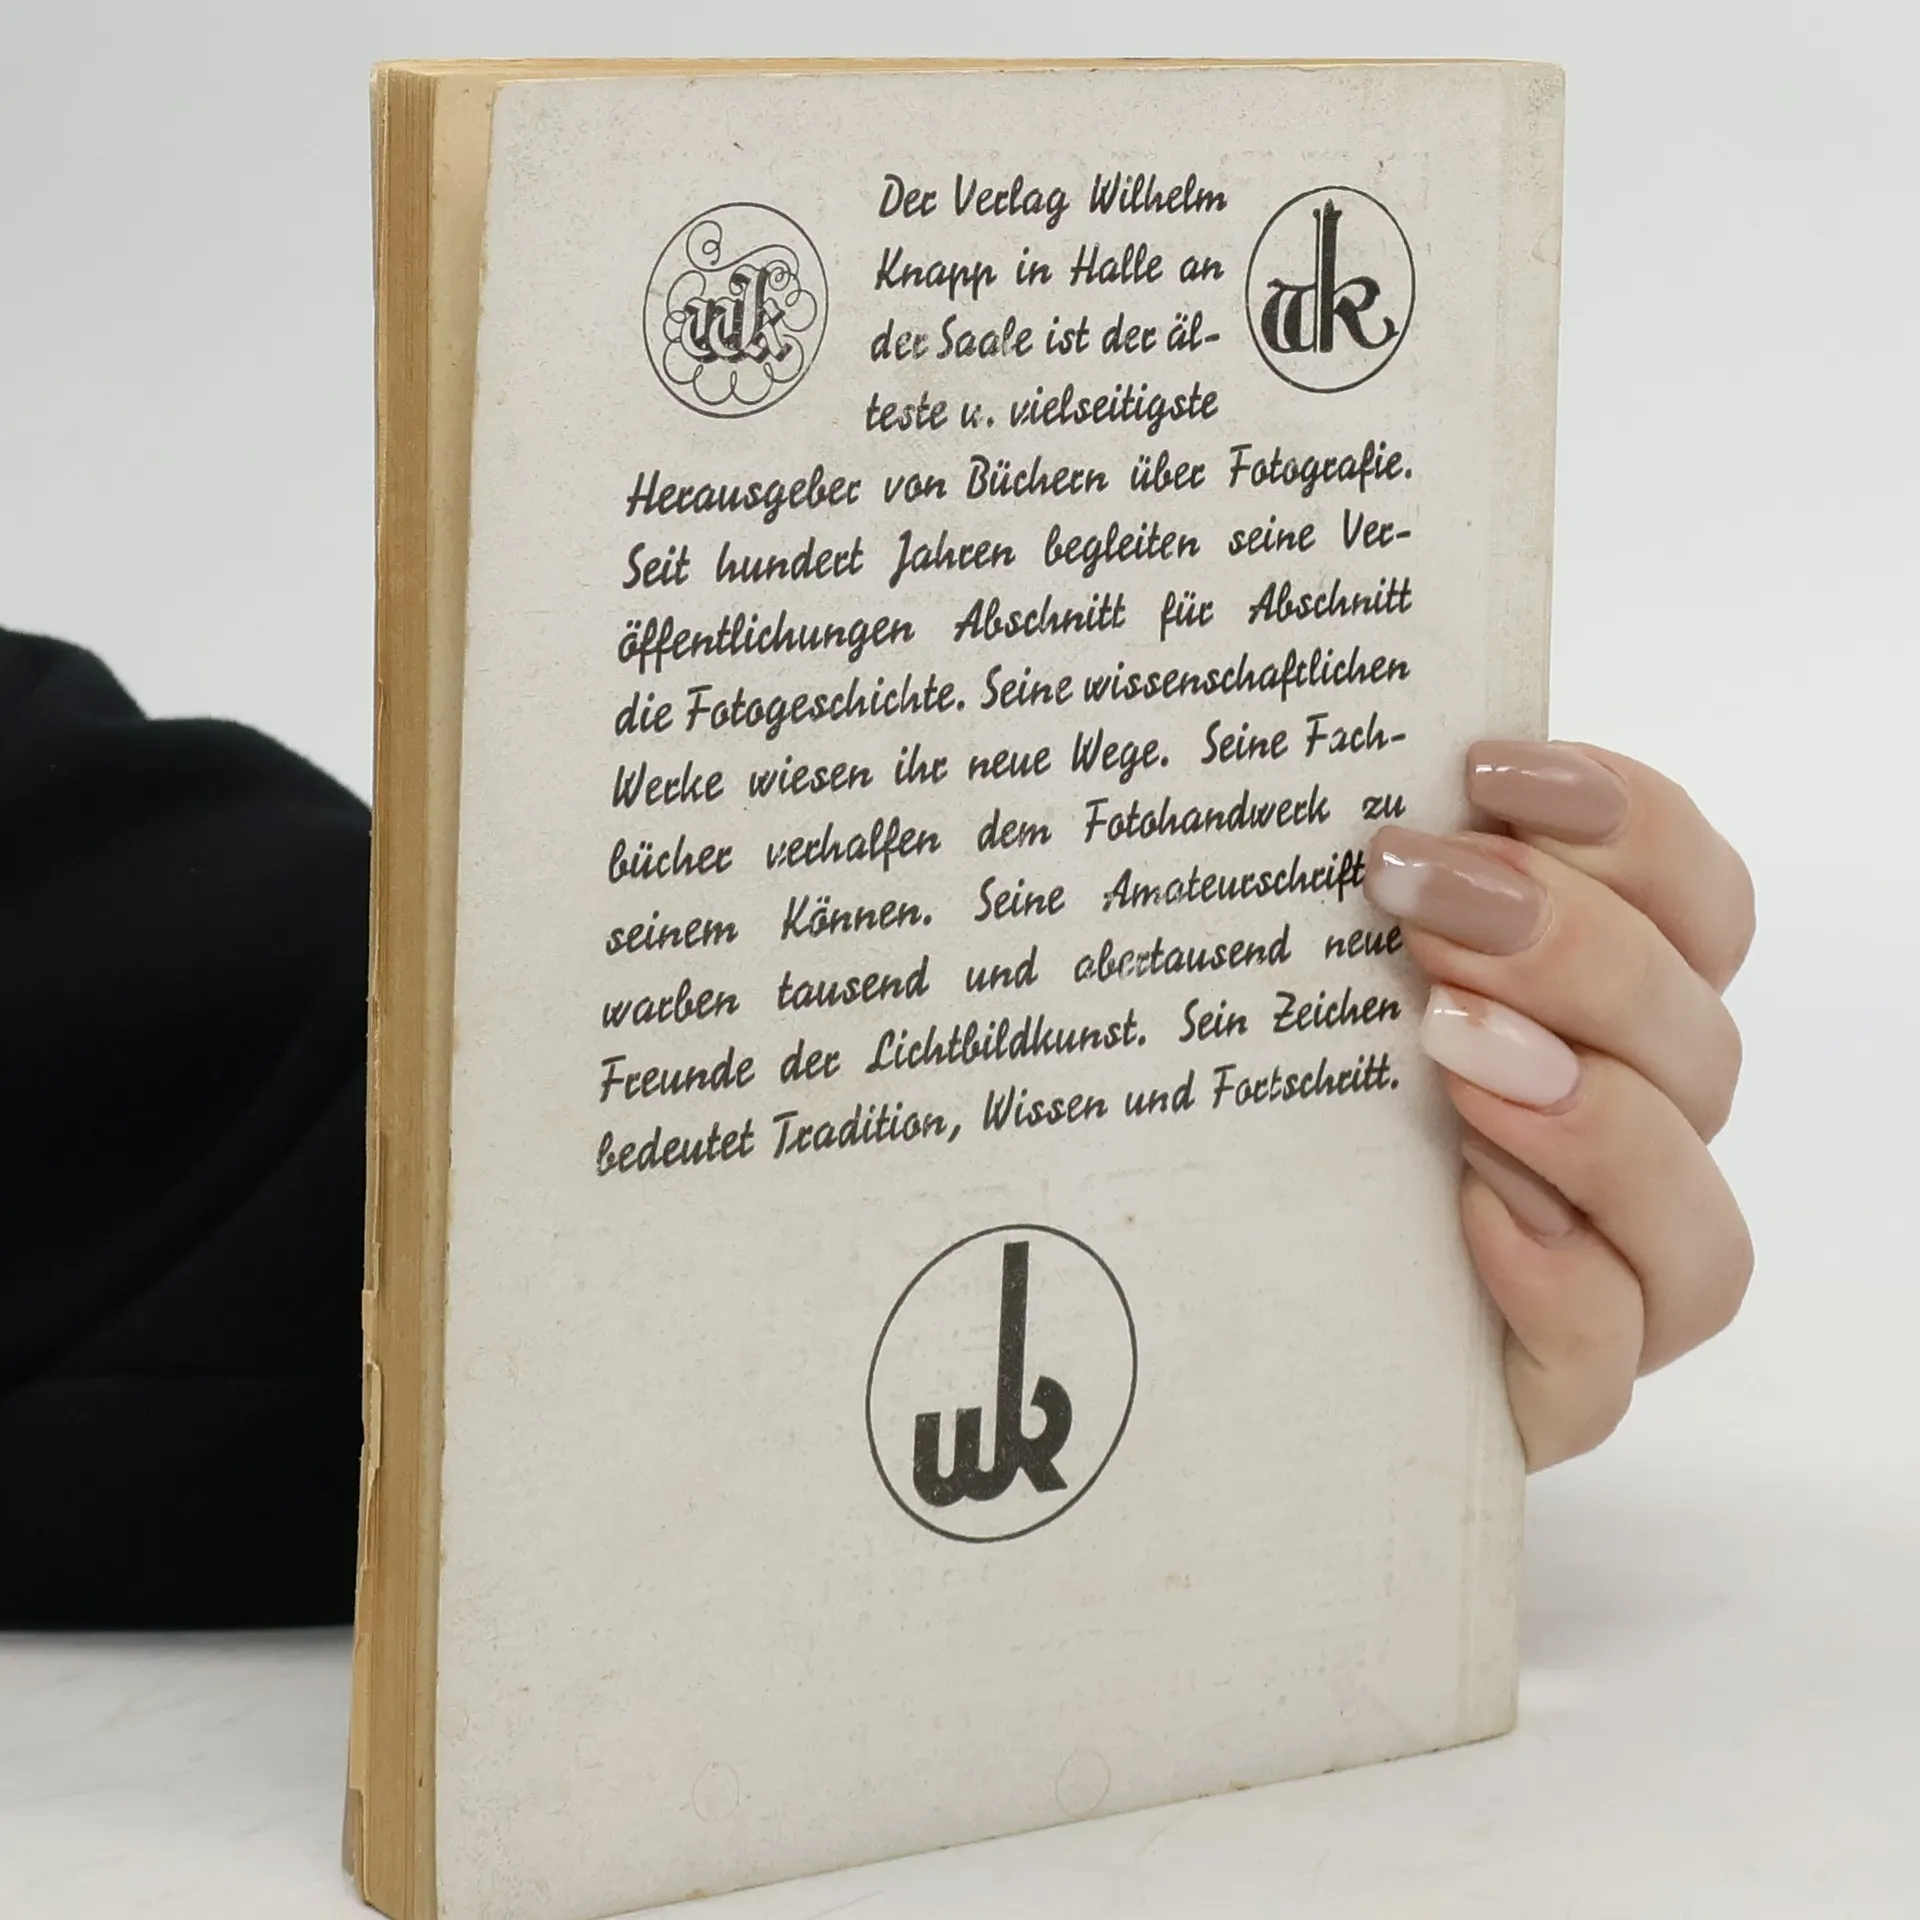 wk
Der Verlag Wilhelm
wk
Knapp in Halle an
der Saale ist der äl-
teste u. vielseitigste
Herausgeber von Büchern über Fotografie.
Seit hundert Jahren begleiten seine Ver-
öffentlichungen Abschnitt für Abschnitt
die Fotogeschichte. Seine wissenschaftlichen
Werke wiesen ihr neue Wege. Seine Fach-
bücher verhalfen dem Fotohandwerk zu
seinem Können. Seine Amateurschrift
warben tausend und abertausend neue
Freunde der Lichtbildkunst. Sein Zeichen
bedeutet Tradition, Wissen und Fortschritt.
wk